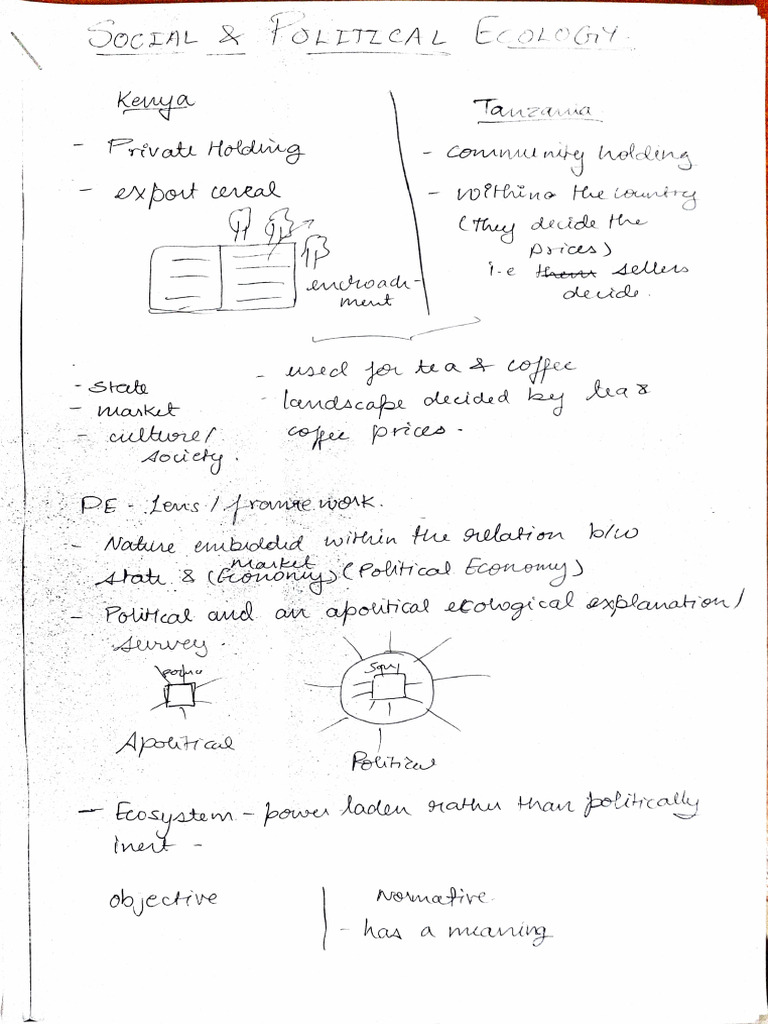 SOCIAL & POLITICAL ECOLOGY.
Kenya
- Private Holding
- export cereal
encroach-
ment
Tanzania
- community holding
- within the country
(they decide the
prices)
i.e sellers
decide.
- state
- market
- culture/
society.
- used for tea & coffee
- landscape decided by tea &
coffee prices.
PE - Lens / framework.
- Nature embedded within the relation b/w
market
state & (Economy) (Political Economy)
- Political and an apolitical ecological explanation/
survey.
Apolitical
Political
- Ecosystem - power laden rather than politically
inert -
objective
Normative.
- has a meaning